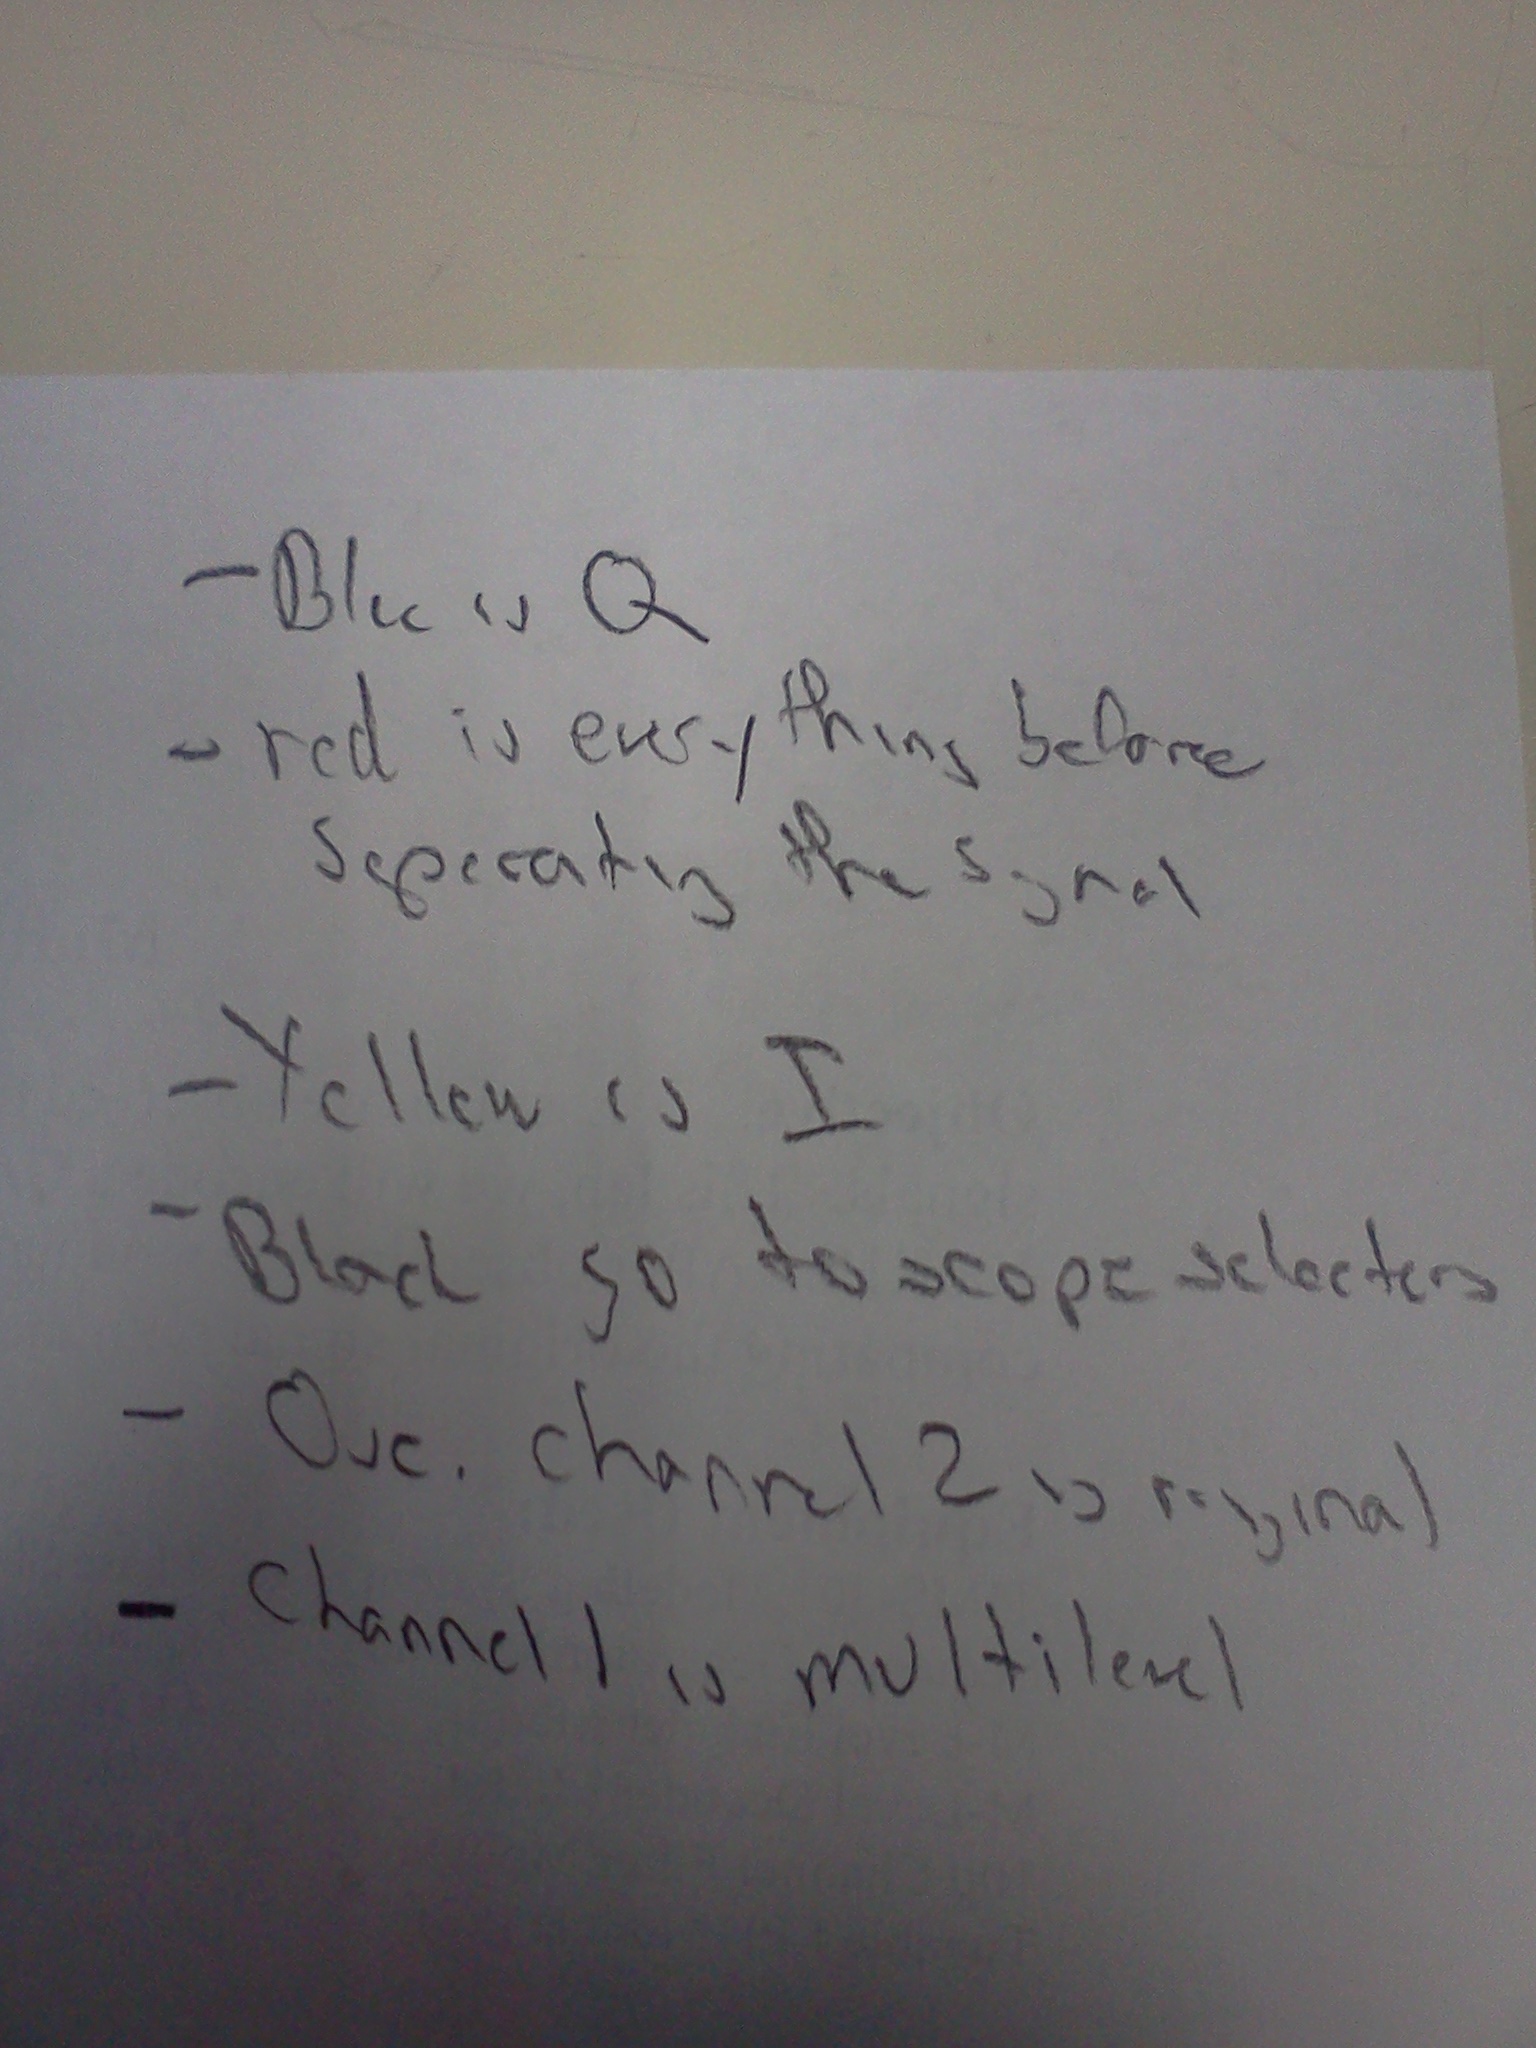 - Blue is Q
- red is everything before
seperating the signal
- Yellow is I
- Black go to scope selectors
- Osc. channel 2 is original
- Channel 1 is multilevel